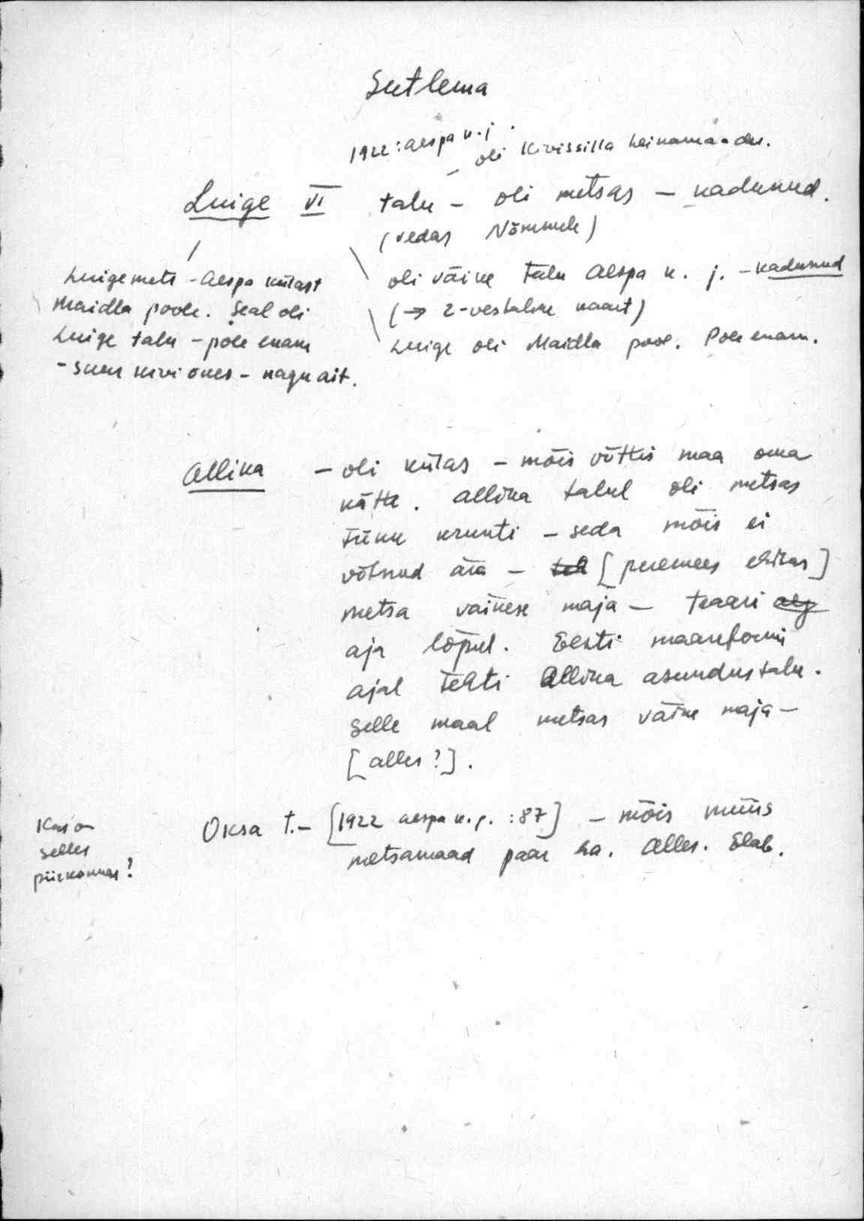 Sutlema
1922: Aespa k. j.
oli Kivissilla heinamaadu.
Luige VI talu – oli metsas – kadunud.
(vedas Nõmmele)
Luigemets – Aespa külast
Maidla poole. Seal oli
Luige talu – pole enam
– suur kivi õues – nagu ait.
oli väike talu Aespa k. j. – kadunud
(→ 2-verstaline kaart)
Luige oli Maidla pool. Pole enam.
Allika – oli külas – mõis võttis maa oma
kätte. Allika talul oli metsas
tükk krunti – seda mõis ei
võtnud ära – [peremees ehitas]
metsa väikese maja – tsaari
aja lõpul. Eesti maareformi
ajal tehti Allika asundustalu.
Selle maal metsas väike maja –
[alles?].
Kas on
selles
piirkonnas?
Oksa t. – [1922 Aespa k. p. : 87] – mõis müüs
metsamaad paar ha. Alles. Elab.